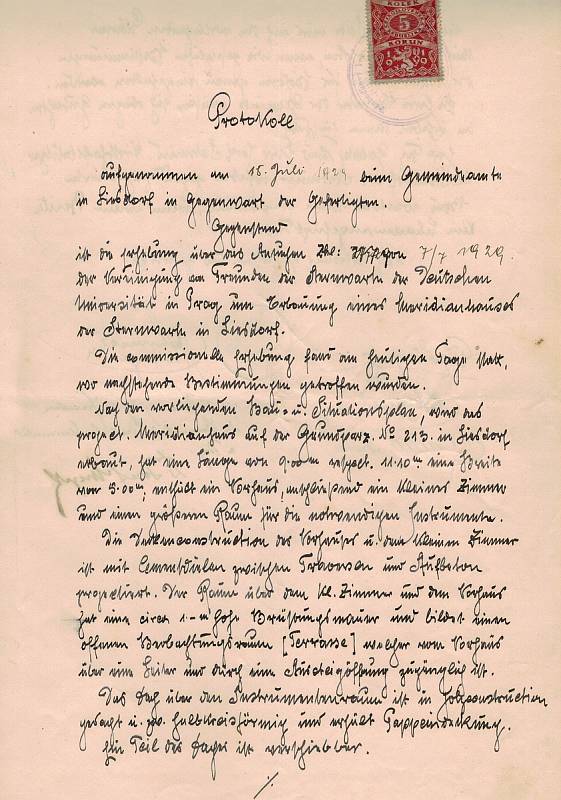 KOLEK
5
KORUN
1919
Protokoll
aufgenommen am 15. Juli 1929 beim Gemeindeamte
in Liesdorf in Gegenwart der Gefertigten.
Gegenstand
ist die Erhebung über das Ansuchen von 7/7 1929.
der Vereinigung von Freunden der Sternwarte der Deutschen
Universität in Prag um Erbauung eines Meridianhauses
der Sternwarte in Liesdorf.
Die commissionelle Erhebung fand am heutigen Tage statt,
wo nachstehende Bestimmungen getroffen wurden.
Nach den vorliegenden Bau- u. Situationsplan, wird das
project. Meridianhaus auf der Grundparz. No 213. in Liesdorf
erbaut, hat eine Länge von 9.00m respect. 11.10m eine Breite
von 5.00m; enthält ein Vorhaus, anschließend ein kleines Zimmer
und einen größeren Raum für die notwendigen Instrumente.
Die Deckenconstruction des Vorhauses u. dem kleinen Zimmer
ist mit Cementdielen zwischen Traversen und Aufbeton
projectiert. Der Raum über dem kl. Zimmer und dem Vorhaus
hat eine circa 1.-m hohe Brüstungsmauer und bildet einen
offenen Beobachtungsraum [Terrasse] welcher vom Vorhaus
über eine Leiter und durch eine Aussteigöffnung zugänglich ist.
Das Dach über den Instrumentenraum ist in Holzconstruction
gedacht u. zw. halbkreisförmig und erhält Pappeindeckung.
Ein Teil des Daches ist verschiebbar.
./.